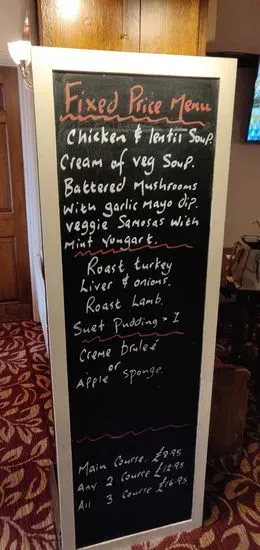 Fixed Price Menu
Chicken & lentil Soup.
Cream of veg Soup.
Battered Mushrooms
with garlic Mayo dip.
veggie Samosas with
Mint Yougart.
Roast turkey
Liver & onions.
Roast Lamb.
Suet Pudding x 1
Creme brulee
or
Apple Sponge.
Main Course. £9.95
Any 2 Course £12.95
All 3 Course £16.95